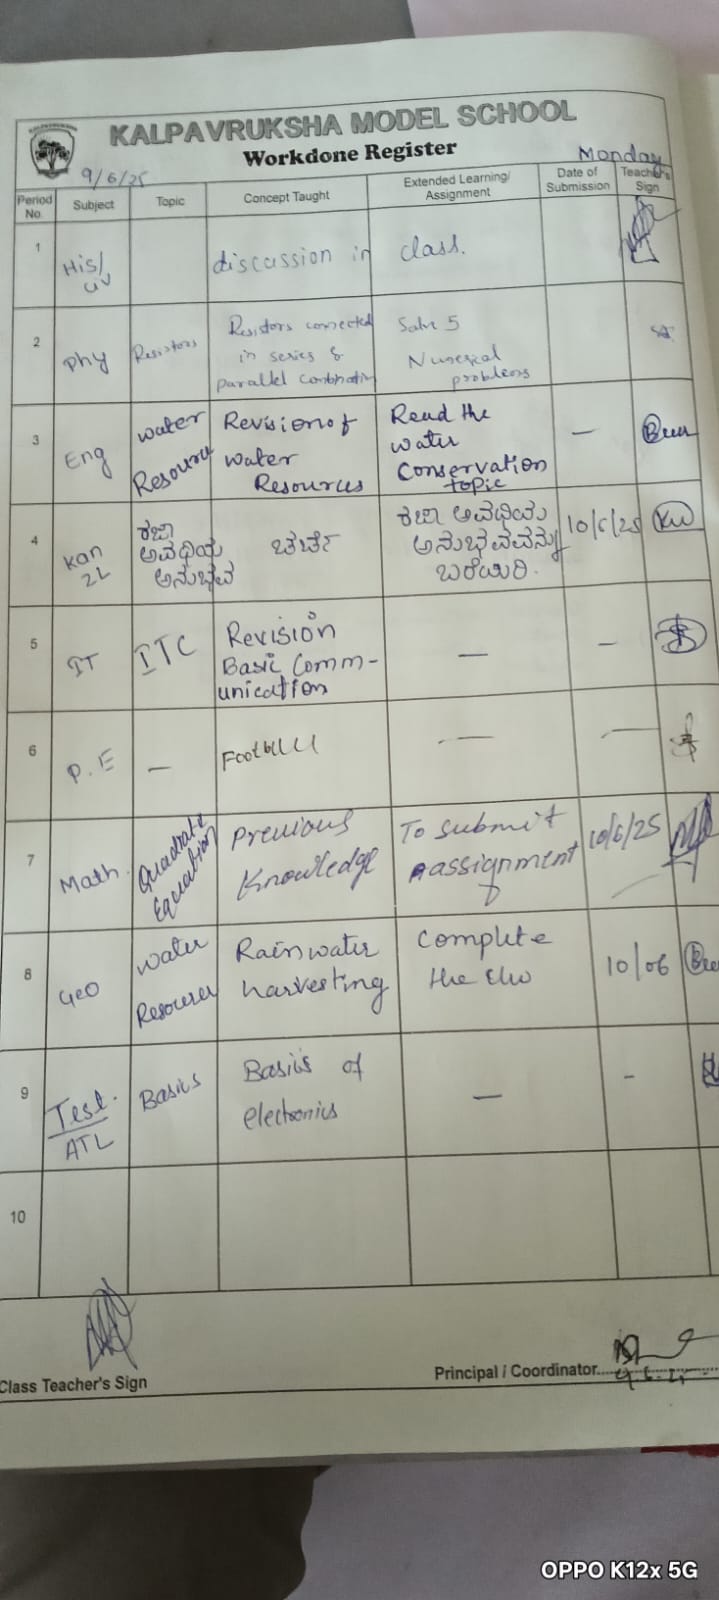 KALPAVRUKSHA MODEL SCHOOL
Workdone Register
9/6/25
Monday
Period No.
Subject
Topic
Concept Taught
Extended Learning/ Assignment
Date of Submission
Teacher's Sign
1
His/
civ
discussion in class.
2
Phy
Resistors
Resistors connected
in series &
parallel combination
Solve 5
Numerical
problems
3
Eng
water
Resource
Revision of
water
Resources
Read the
water
Conservation
topic
—
4
Kan
2L
ಕಜಾ
ಅವಧಿಯ
ಅನುಭವ
ಚರ್ಚೆ
ಕಜಾ ಅವಧಿಯ
ಅನುಭವವನ್ನು
ಬರೆಯಿರಿ.
10/6/25
5
IT
ITC
Revision
Basic Comm-
unication
—
–
6
P.E
—
Football
—
—
7
Math.
Quadratic
Equation
Previous
Knowledge
To submit
assignment
10/6/25
8
Geo
water
Resources
Rainwater
harvesting
Complete
the
10/06
9
Test.
ATL
Basics
Basics of
electronics
—
–
10
Class Teacher's Sign
Principal / Coordinator
9.6.25
OPPO K12x 5G